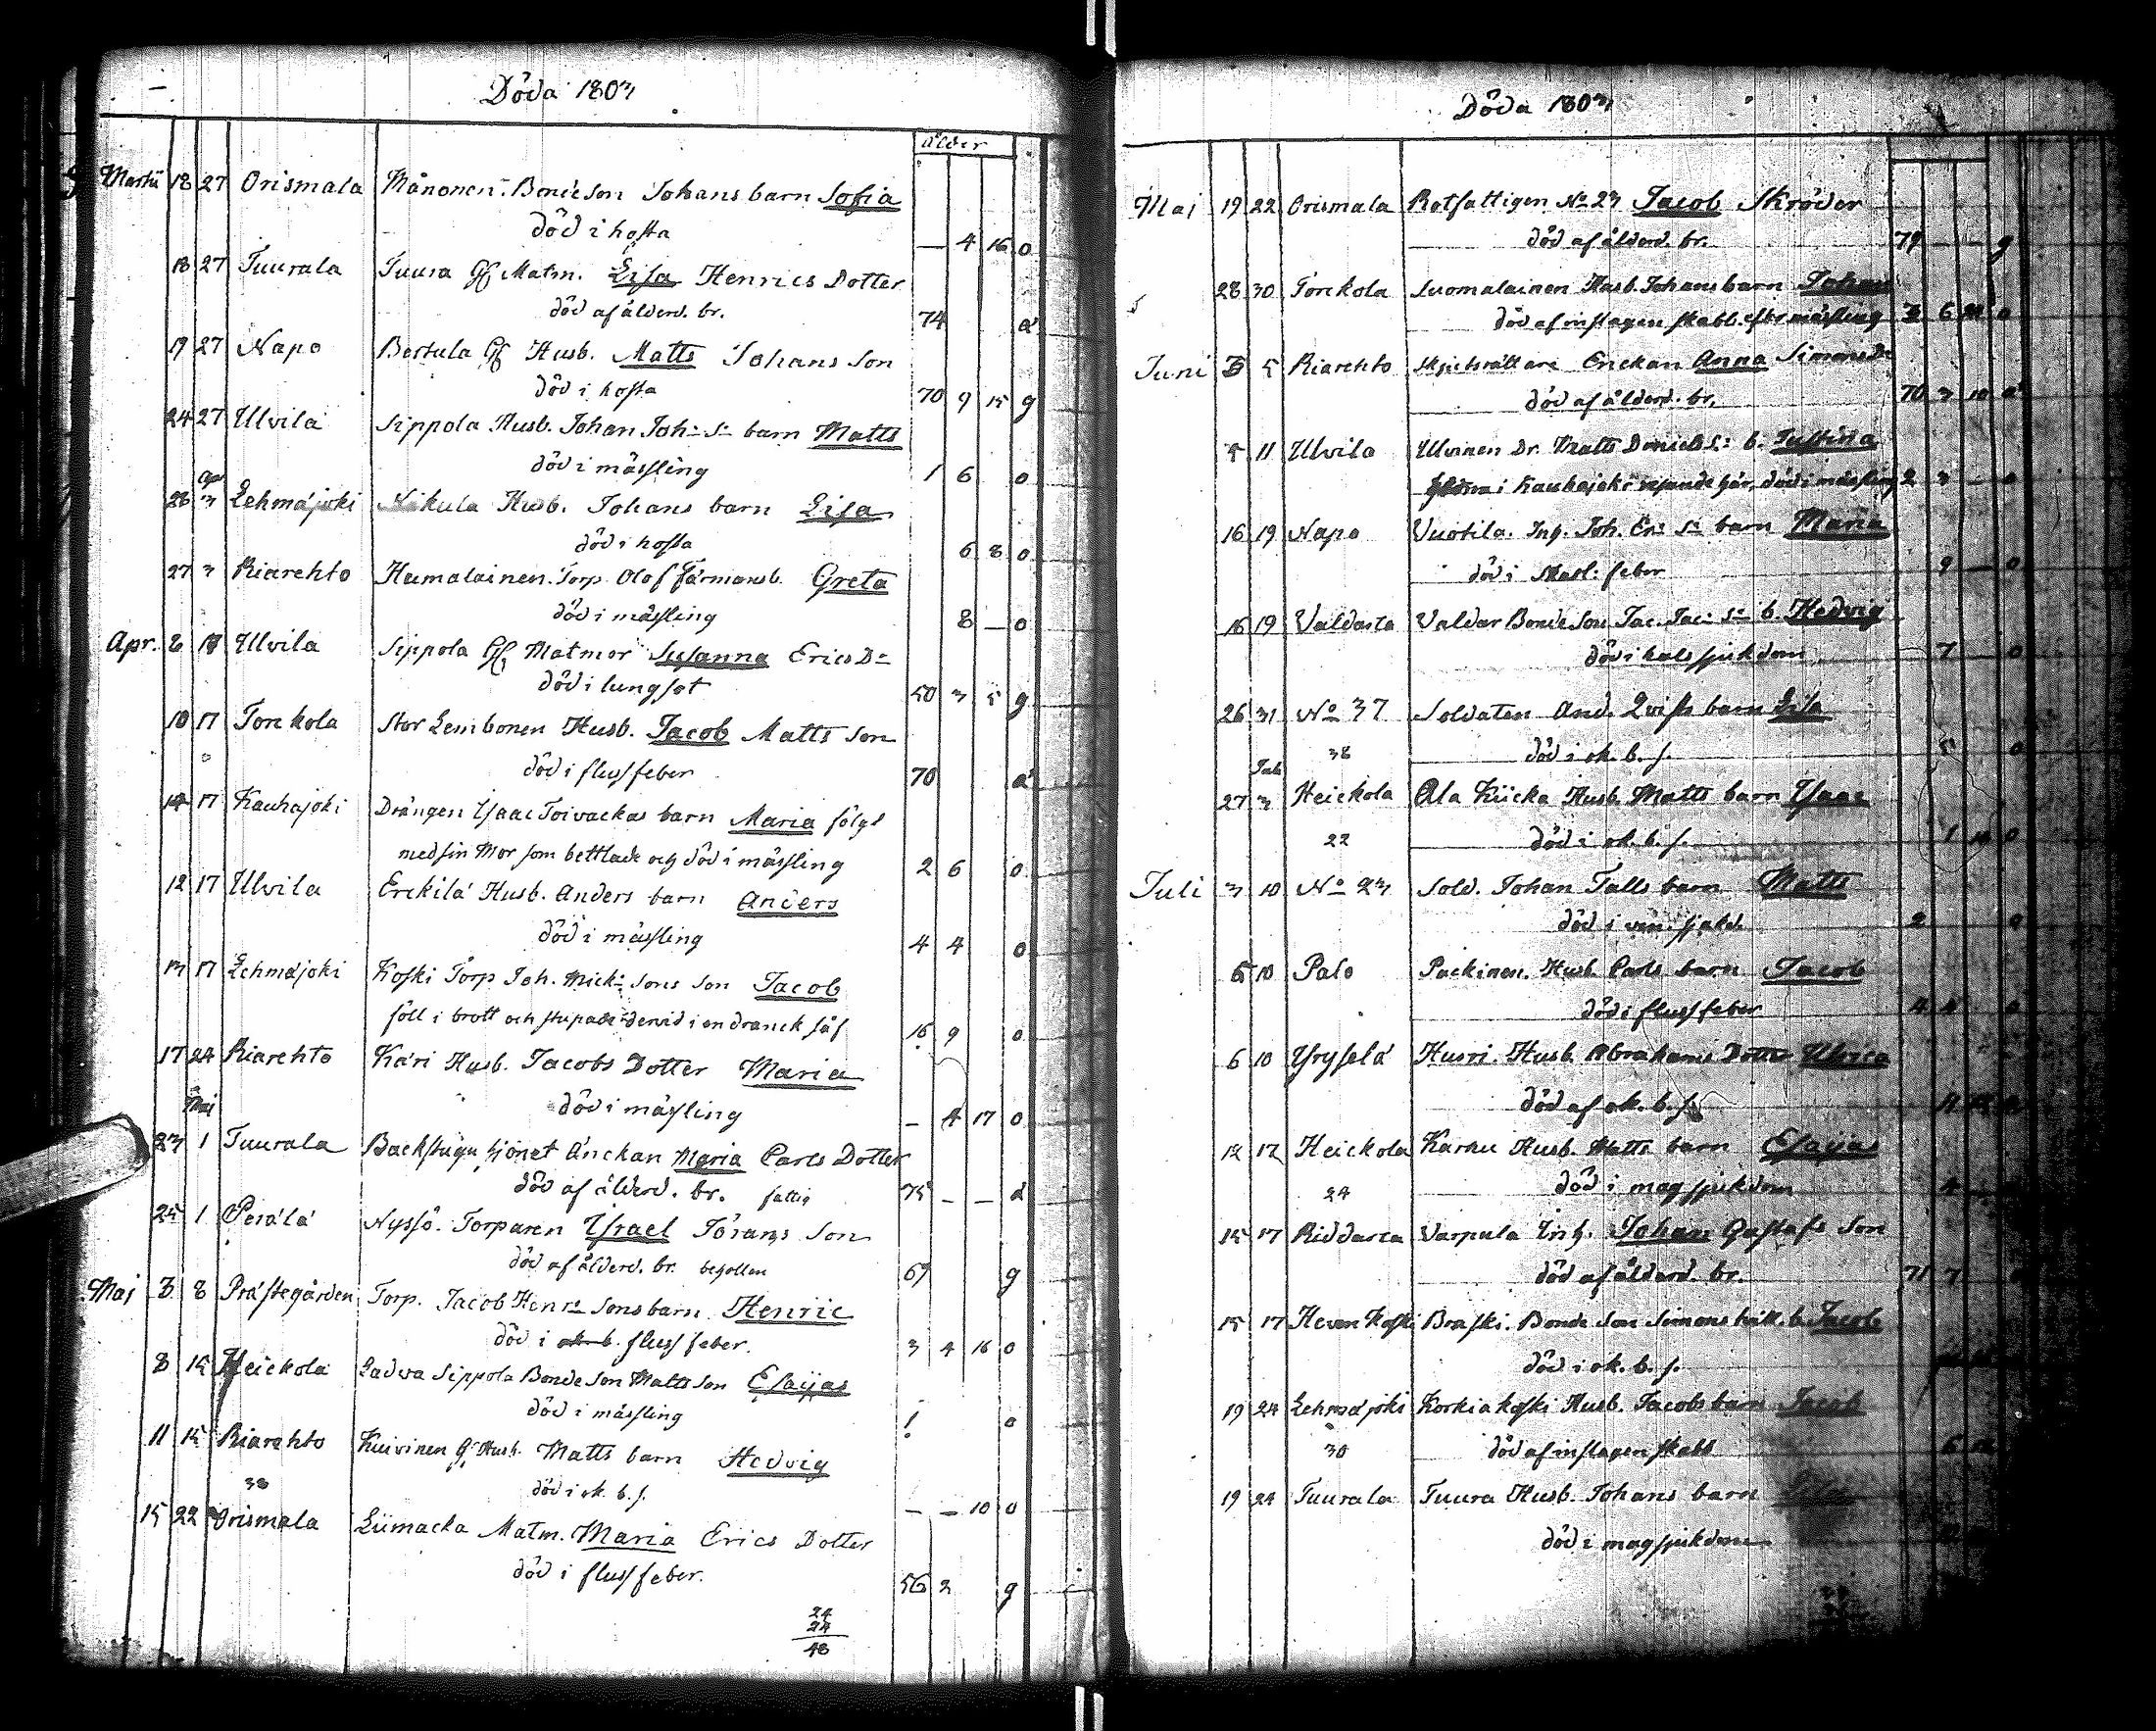 Döda 1803
ålder
Martii 18 27 Orismala Månonen. Bonde Son Johans barn Sofia
död i hosta — 4 16 o
18 27 Tuurala Tuura Gl Matm. Lisa Henrics Dotter
död af ålderd. br. 74 ä
19 27 Napo Bertula Gl Husb. Matts Johans Son
död i hosta 70 9 15 g
24 27 Ulvila Sippola Husb. Johan Joh: S: barn Matts
död i mässling 1 6 o
Apr
28 3 Lehmäjoki Nikula Husb. Johans barn Lisa
död i hosta 6 8 o
27 3 Riarehto Humalainen. Torp. Olof Färmansb. Greta
död i mässling 8 — o
Apr. 6 18 Ulvila Sippola Gl Matmor Susanna Erics D:
död i lungsot 50 3 5 g
10 17 Torckola Stor Lembonen Husb. Jacob Matts Son
död i flussfeber 70 ä
14 17 Kauhajoki Drängen Ysaac Toivackas barn Maria följt
med sin Mor som bettlade och död i mässling 2 6 o
12 17 Ulvila Erckilä Husb. Anders barn Anders
död i mässling 4 4 o
13 17 Lehmäjoki Koski Torp Joh. Mick: Sons Son Jacob
föll i brott och stupade dervid i en dranck så f 16 9 o
17 24 Riarehto Käri Husb. Jacobs Dotter Maria
död i mässling — 4 17 o
Maj
23 1 Tuurala Backstugu hjonet Änckan Maria Carls Dotter
död af ålderd. br. fattig 75 — — ä
25 1 Perälä Nyssö. Torparen Ysrael Görans Son
död af ålderd. br. 69 g
Maj 3 8 Prästegården Torp. Jacob Henr: Sons barn Henric
död i ok. b. flussfeber. 3 4 16 o
8 15 Heickola Ladva Sippola Bonde Son Matts Son Esaijas
död i mässling 1 o
11 15 Riarehto Kuivinen G: Husb. Matts barn Hedvig
38 död i ok. b. s. — — 10 o
15 22 Orismala Liimacka Matm. Maria Erics Dotter
död i flussfeber. 56 2 g
24
24
48
Döda 1803
Maj 19 22 Orismala Rotfattigen No 23 Jacob Skröder
död af ålderd. br. 79 — — g
28 30 Torckola Suomalainen Husb. Johans barn Johan
död af inslagen skabb efter mässling 6 o
Juni 3 5 Riarehto Skjutsrättare Enckan Anna Simons D:
död af ålderd. br. 70 3 10 ä
5 11 Ulvila Ulvinen Dr. Matts Daniels S: b. Justina
i Kauhajoki död i mässling 2 3 — o
16 19 Napo Vuotila. Inh. Joh. Er: S: barn Maria
död i feber 9 — o
16 19 Valdarea Valdar Bonde Son Jac. Jac: S: b. Hedvig
död i halssjukdom 7 o
26 31 No 37 Soldaten And. Qvists barn Lisa
38 död i ok. b. s. 5 o
Juli
27 3 Heickola Ala Kiicka Husb. Matts barn Ysaac
22 död i ok. b. s. 1 14 o
Juli 3 10 No 23 Sold. Johan Talls barn Matts
död i 2 o
5 10 Palo Packinen. Husb. Carls barn Jacob
död i flussfeber 4 4 o
6 10 Yryselä Husri. Husb. Abrahams Dotter Ulrica
död af ok. b. s.
12 17 Heickola Karhu Husb. Matts barn Esaijas
24 död i magsjukdom
15 17 Riddarea Varpula Inh. Johan Gustafs Son
död af ålderd. br. 71 7
15 17 Heven Koski Braski. Bonde Son Simons b. Jacob
död i ok. b. s.
19 24 Lehmäjoki Korkiakoski Husb. Jacobs barn Jacob
30 död af inslagen skabb 6
19 24 Tuurala Tuura Husb. Johans barn
död i magsjukdom